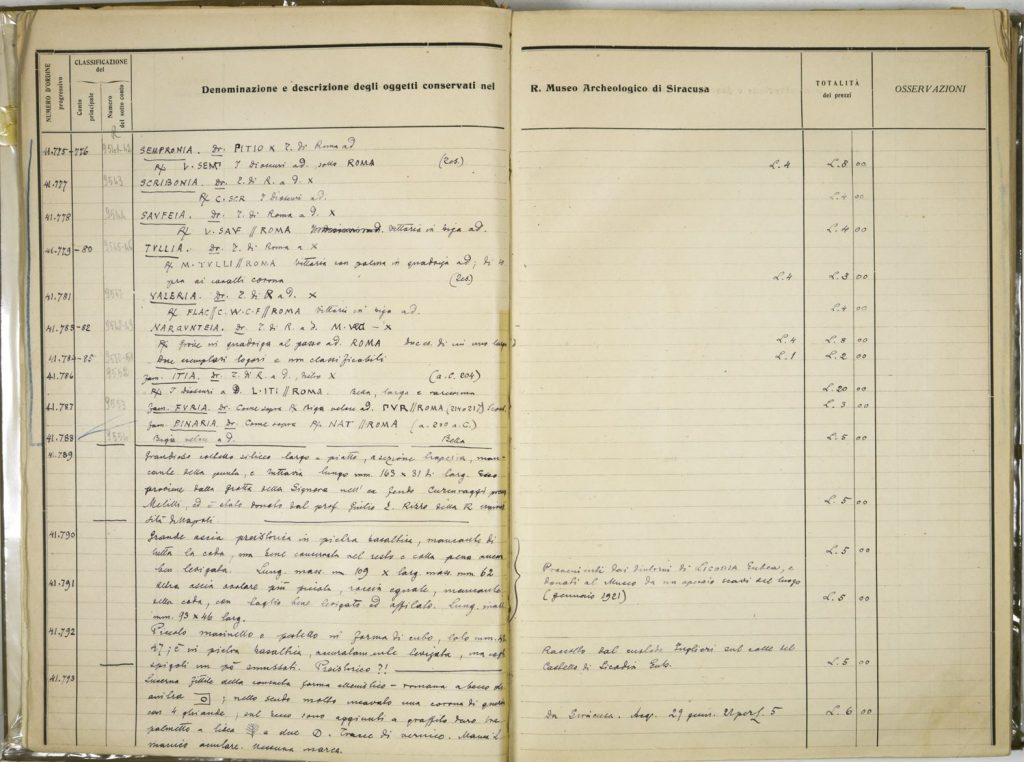 NUMERO D'ORDINE progressivo
CLASSIFICAZIONE del
Conto principale
Numero del sotto conto
Denominazione e descrizione degli oggetti conservati nel R. Museo Archeologico di Siracusa
TOTALITÀ dei prezzi
OSSERVAZIONI
R
41.775-776 SEMPRONIA. Dr. PITIO X T. di Roma a d
R/ L. SEM I Dioscuri ad. sotto ROMA L. 4 L. 8 00
41.777 9543 SCRIBONIA. Dr. T. di R. a d. X
R/ C. SCR I Dioscuri ad. L. 4 00
41.778 9544 SAVFEIA. Dr. T. di Roma a d. X
R/ L. SAVF // ROMA Vittoria in biga ad. L. 4 00
41.779-80 TVLLIA. Dr. T. di Roma a X
R/ M. TVLLI // ROMA Vittoria con palma in quadriga ad; di so
pra ai cavalli corona L. 4 L. 8 00
41.781 VALERIA. Dr. T. di R a d. X
R/ FLAC // C. W. C. F // ROMA Vittoria in biga ad. L. 4 00
41.783-82 NARGVNTEIA. Dr. T. di R. a d. X
R/ in quadriga al passo ad. ROMA L. 4 L. 8 00
41.784-85 Due esemplari logori e non classificabili L. 1 L. 2 00
41.786 9552 fam. ITIA. Dr. T. di R. a d., dietro X (a. C. 204)
R/ I Dioscuri a D. L. ITI // ROMA. Bella, larga e rarissima L. 20 00
41.787 9553 fam. FVRIA. Dr. Come sopra R/ Biga veloce ad. PVR // ROMA (217) L. 3 00
fam. PINARIA. Dr. Come sopra R/ NAT // ROMA (a. 200 a. C.)
41.788 9554 Biga veloce a d. Bella L. 5 00
41.789 Grandioso coltello siliceo largo e piatto, a sezione trapezia, man-
cante della punta, e tuttavia lungo mm. 163 x 31 di larg. Esso
proviene dalla grotta della Signora nell' ex fondo presso
Melilli, ed è stato donato dal prof. Giulio E. Rizzo della R. Univer
sità di Napoli L. 5 00
41.790 Grande ascia preistorica in pietra basaltica, mancante di
tutta la coda, ma bene conservata nel resto e colla penna ancora
ben levigata. Lung. mass. m 109 x larg. mass. mm 62 L. 5 00
41.791 Altra ascia ovolare più piccola, roccia eguale, mancante
della coda, con taglio bene levigato ed affilato. Lung. mass.
mm. 93 x 46 larg. L. 5 00
Provenienti dai dintorni di LICODIA Eubea, e
donati al Museo da un operaio scavi del luogo
(gennaio 1921)
41.792 Piccolo macinello o pestello in forma di cubo, lato mm.
47; è in pietra basaltica, accuratamente levigata, ma cogli
spigoli un pò smussati. Preistorico?!
Raccolto dal custode sul colle del
Castello di Licodia Eub. L. 5 00
41.793 Lucerna fittile della consueta forma ellenistico-romana a becco di
ancila; nello scudo molto incavato una corona di quercia
con 4 ghiande, sul becco sono aggiunti a graffito duro tre
palmette a lisca e due D. Tracce di vernice. Manca il
manico anulare. Nessuna marca.
Da Siracusa. Acq. 29 genn. 21 per £. 5 L. 6 00